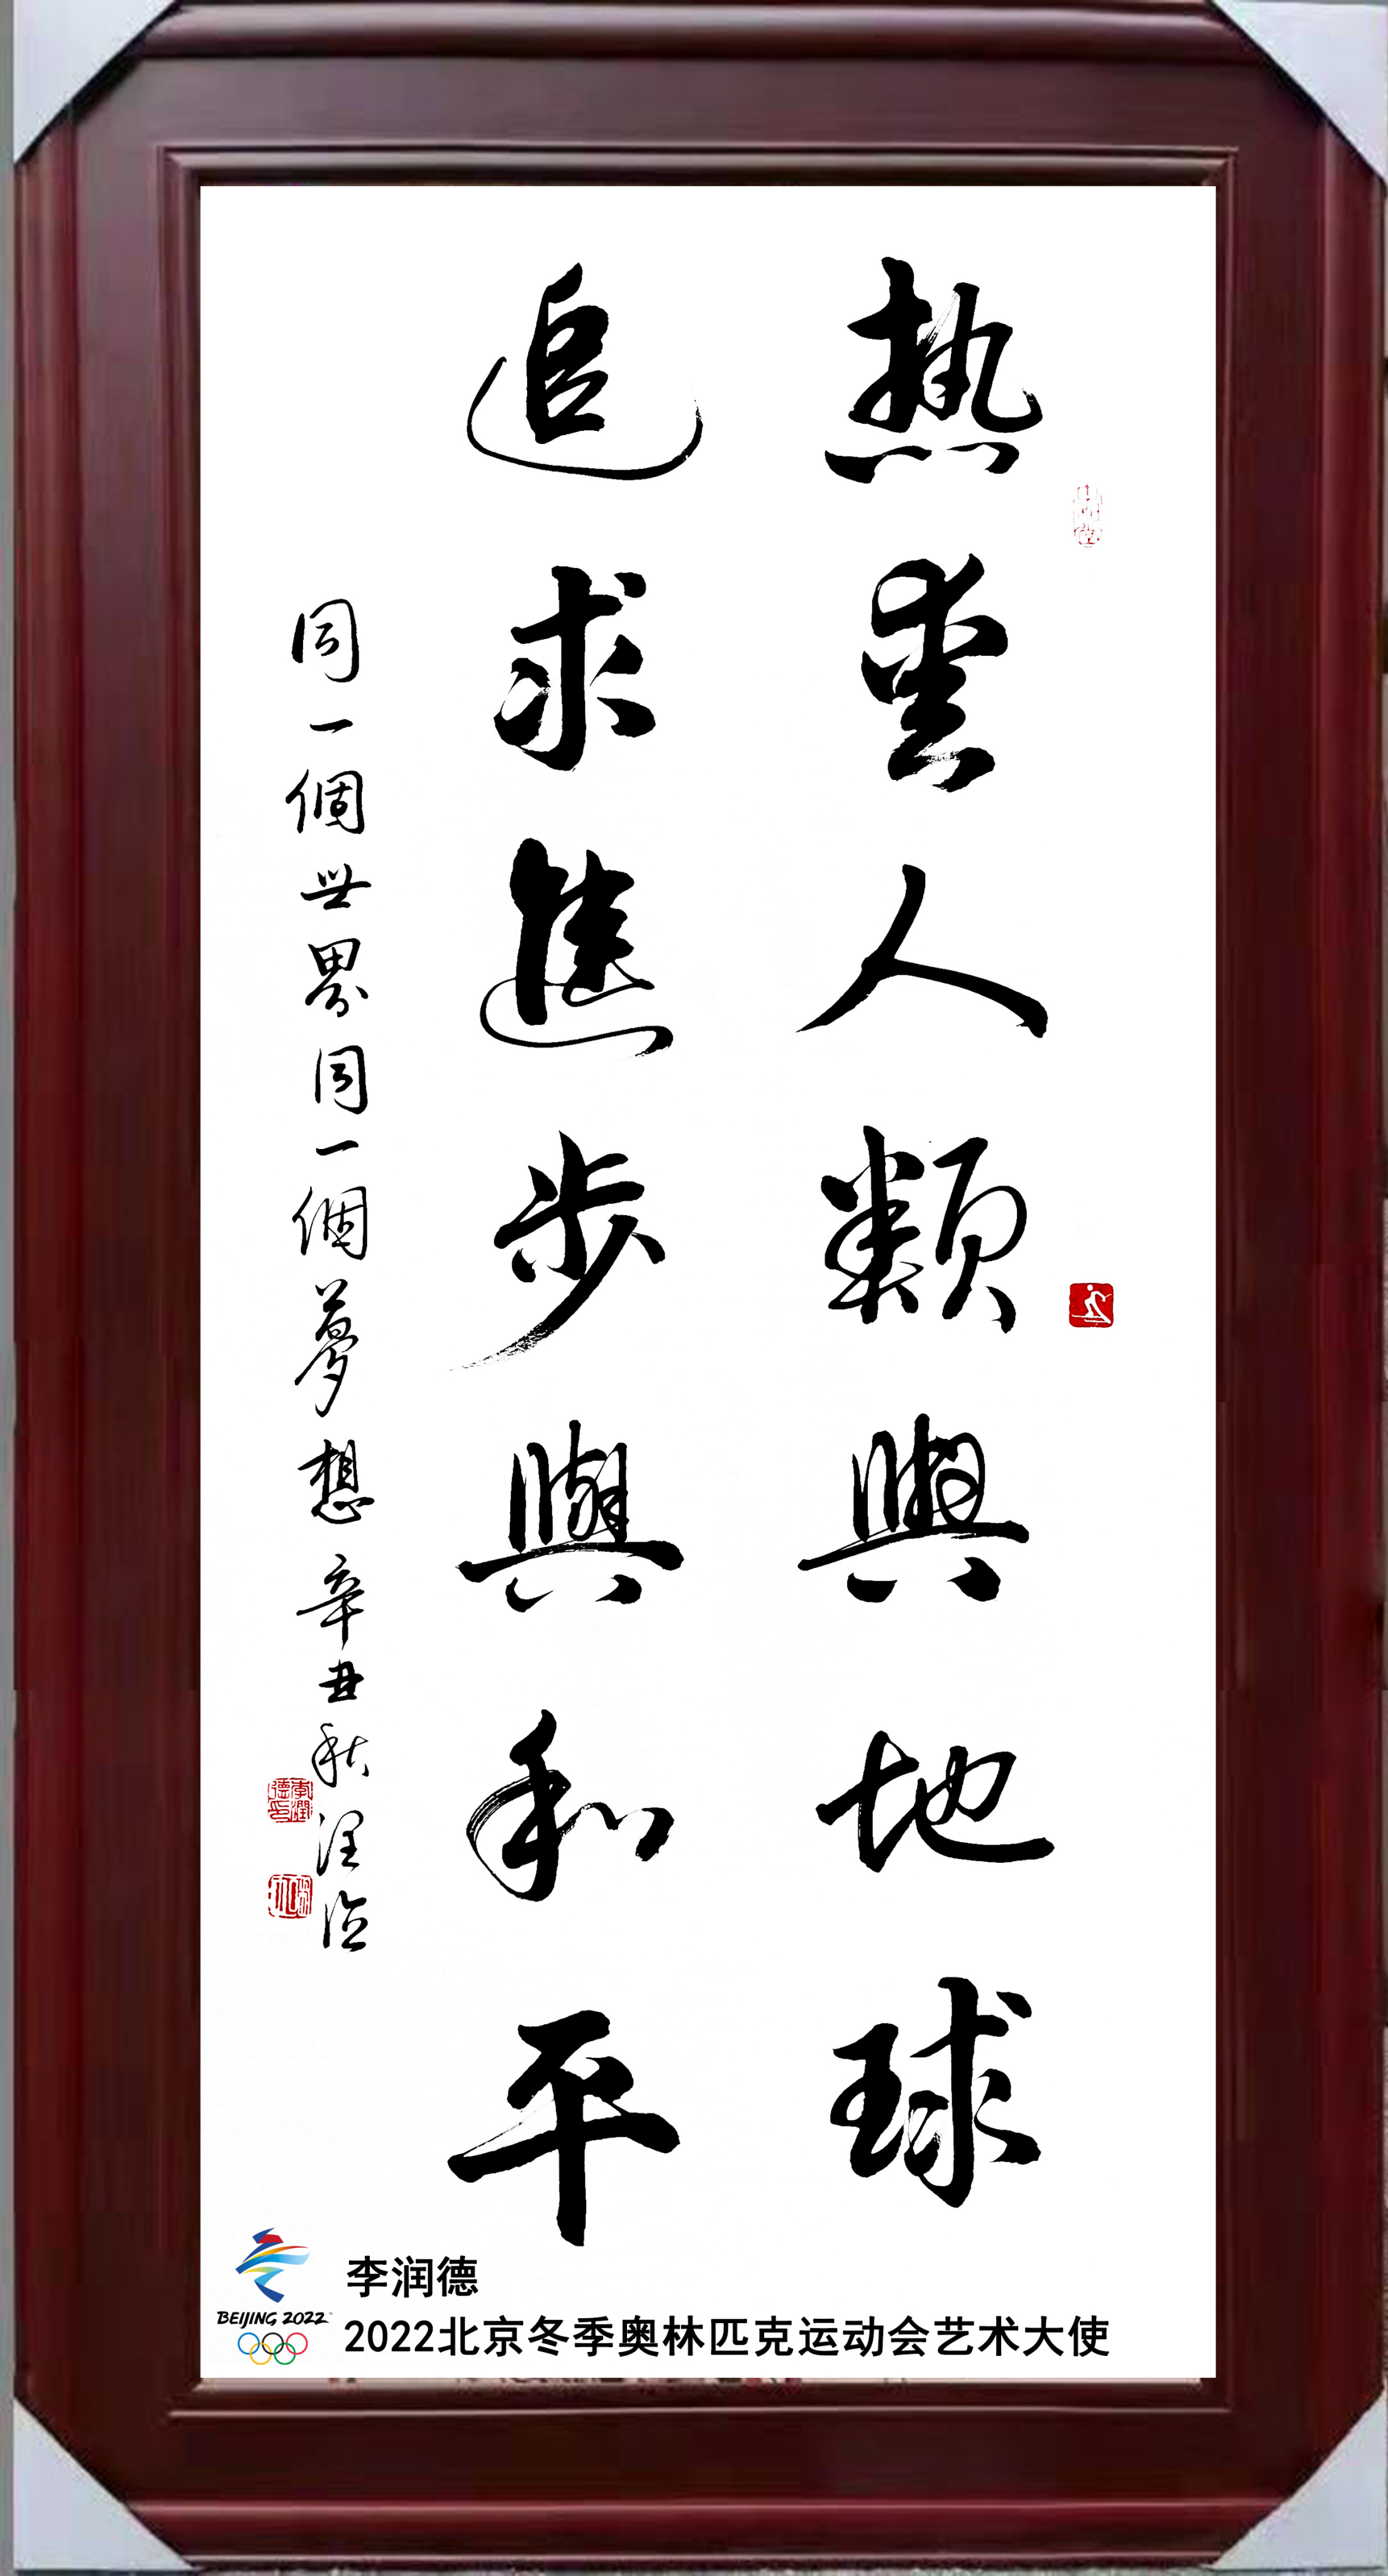 热爱人類與地球
追求進步與和平
同一個世界同一個夢想 辛丑秋 润德
李潤德印
李润德
BEIJING 2022™
2022北京冬季奥林匹克运动会艺术大使